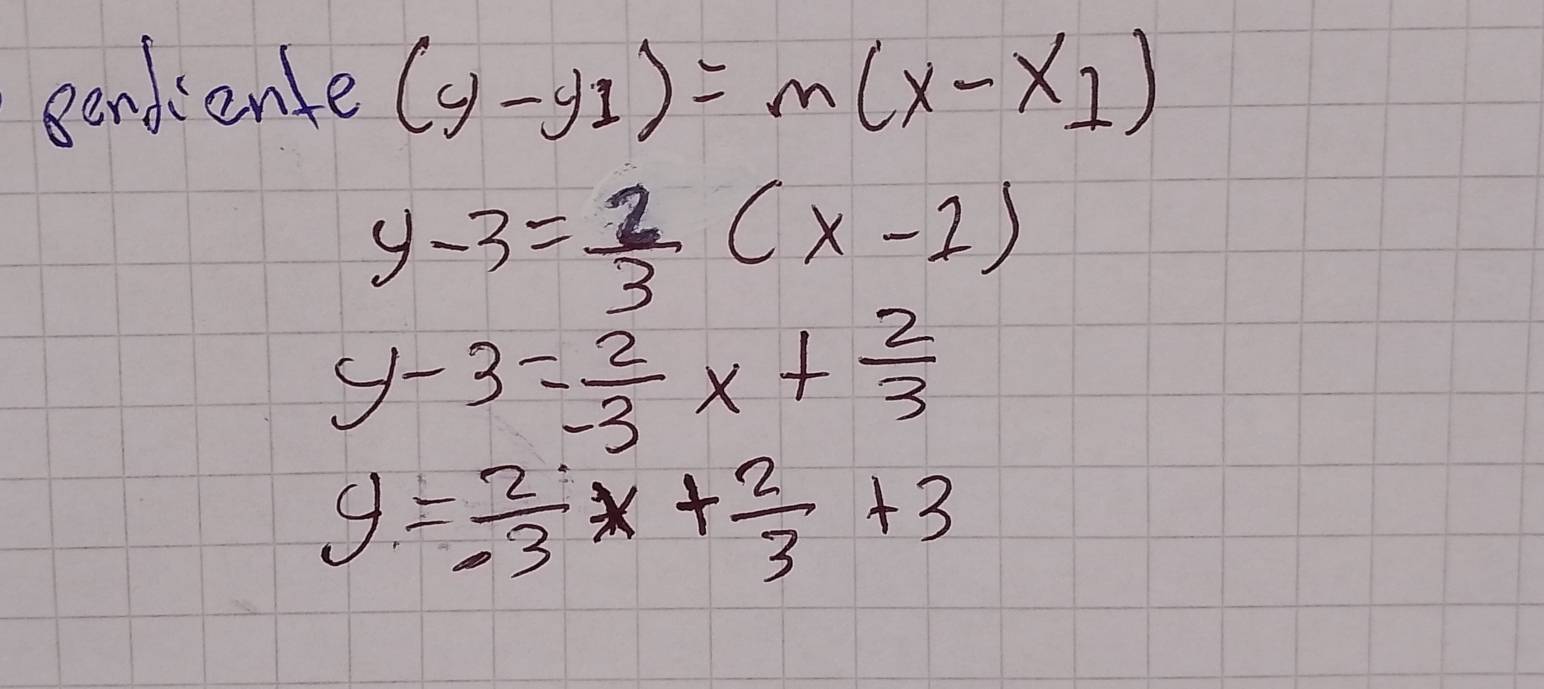 pendiente (y-y1)= m(x-x1)
y-3= 2/3 (x-1)
y-3= 2/-3 x + 2/3
y = 2/-3 x + 2/3 +3